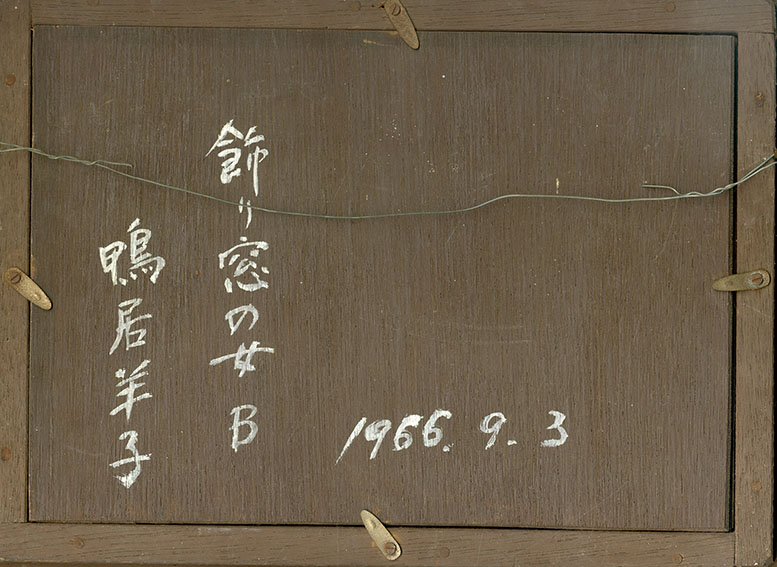 飾り窓の女 B
鴨居羊子
1966. 9. 3